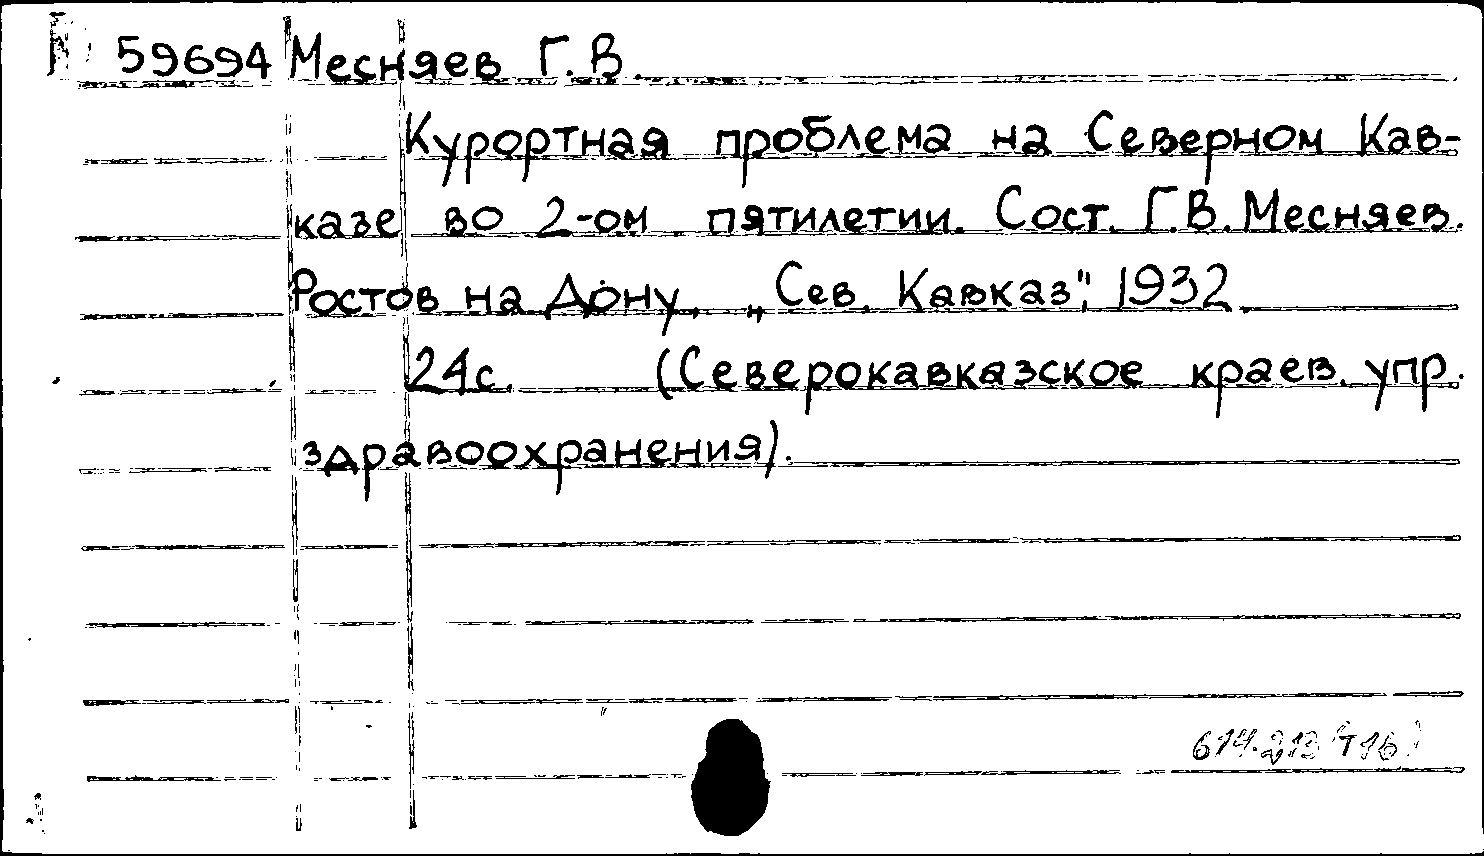 59694 Месняев Г. В.
Курортная проблема на Северном Кав-
казе во 2-ом пятилетии. Сост. Г.В. Месняев.
Ростов на Дону, „Сев. Кавказ", 1932.
24с. (Северокавказское краев. упр.
здравоохранения).
614.213